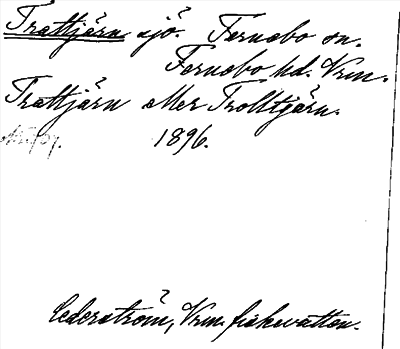 Trattjärn sjö Fernebo sn.
Fernebo hd. Vrm.
Trattjärn eller Trolltjärn.
1896.
Cederström, Vrm. fiskevatten.